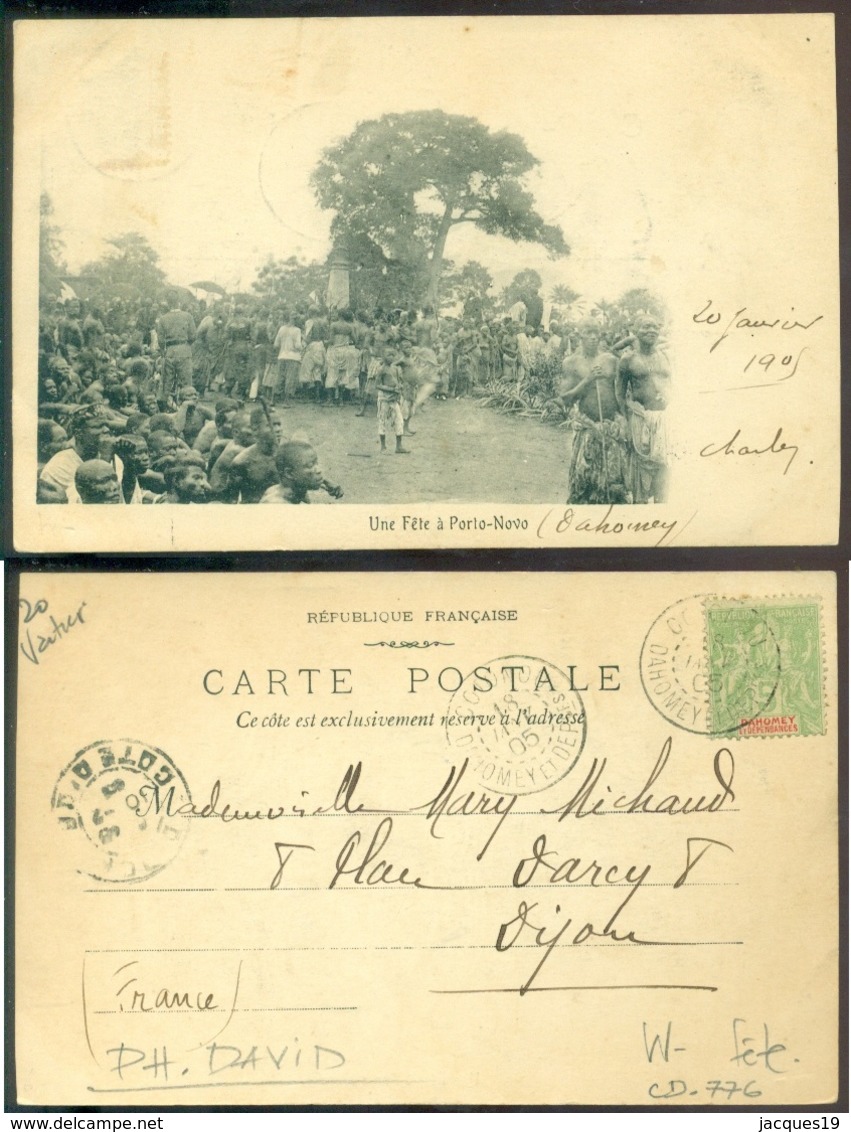 20 Janvier
1905
Charley.
Une Fête à Porto-Novo (Dahomey)
20
RÉPUBLIQUE FRANÇAISE
CARTE POSTALE
Ce côté est exclusivement réservé à l'adresse
DAHOMEY ET
05
DAHOMEY
ET DÉPENDANCES
COTONOU
18
JANV
05
DAHOMEY ET DÉP
COTE D'OR
Mademoiselle Mary Michaud
8 Place Darcy 8
Dijon
(France)
PH. DAVID
W- fête.
CD.776
jacques19